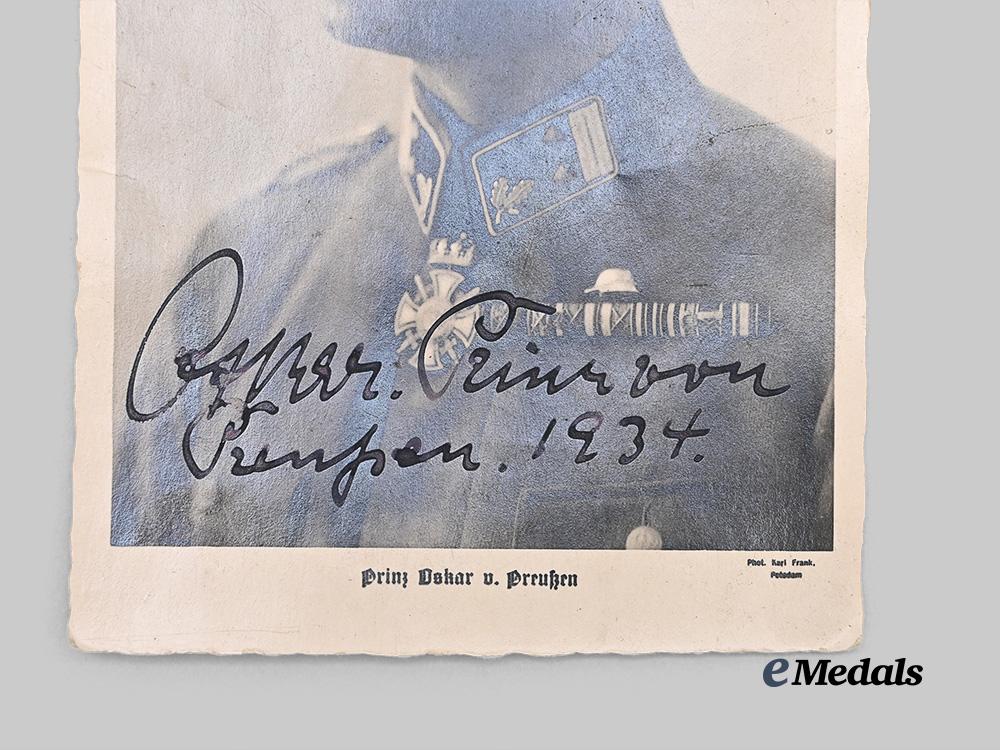 Oskar. Prinz von
Preußen. 1934.
Prinz Oskar v. Preußen
Phot. Karl Frank,
Potsdam
eMedals